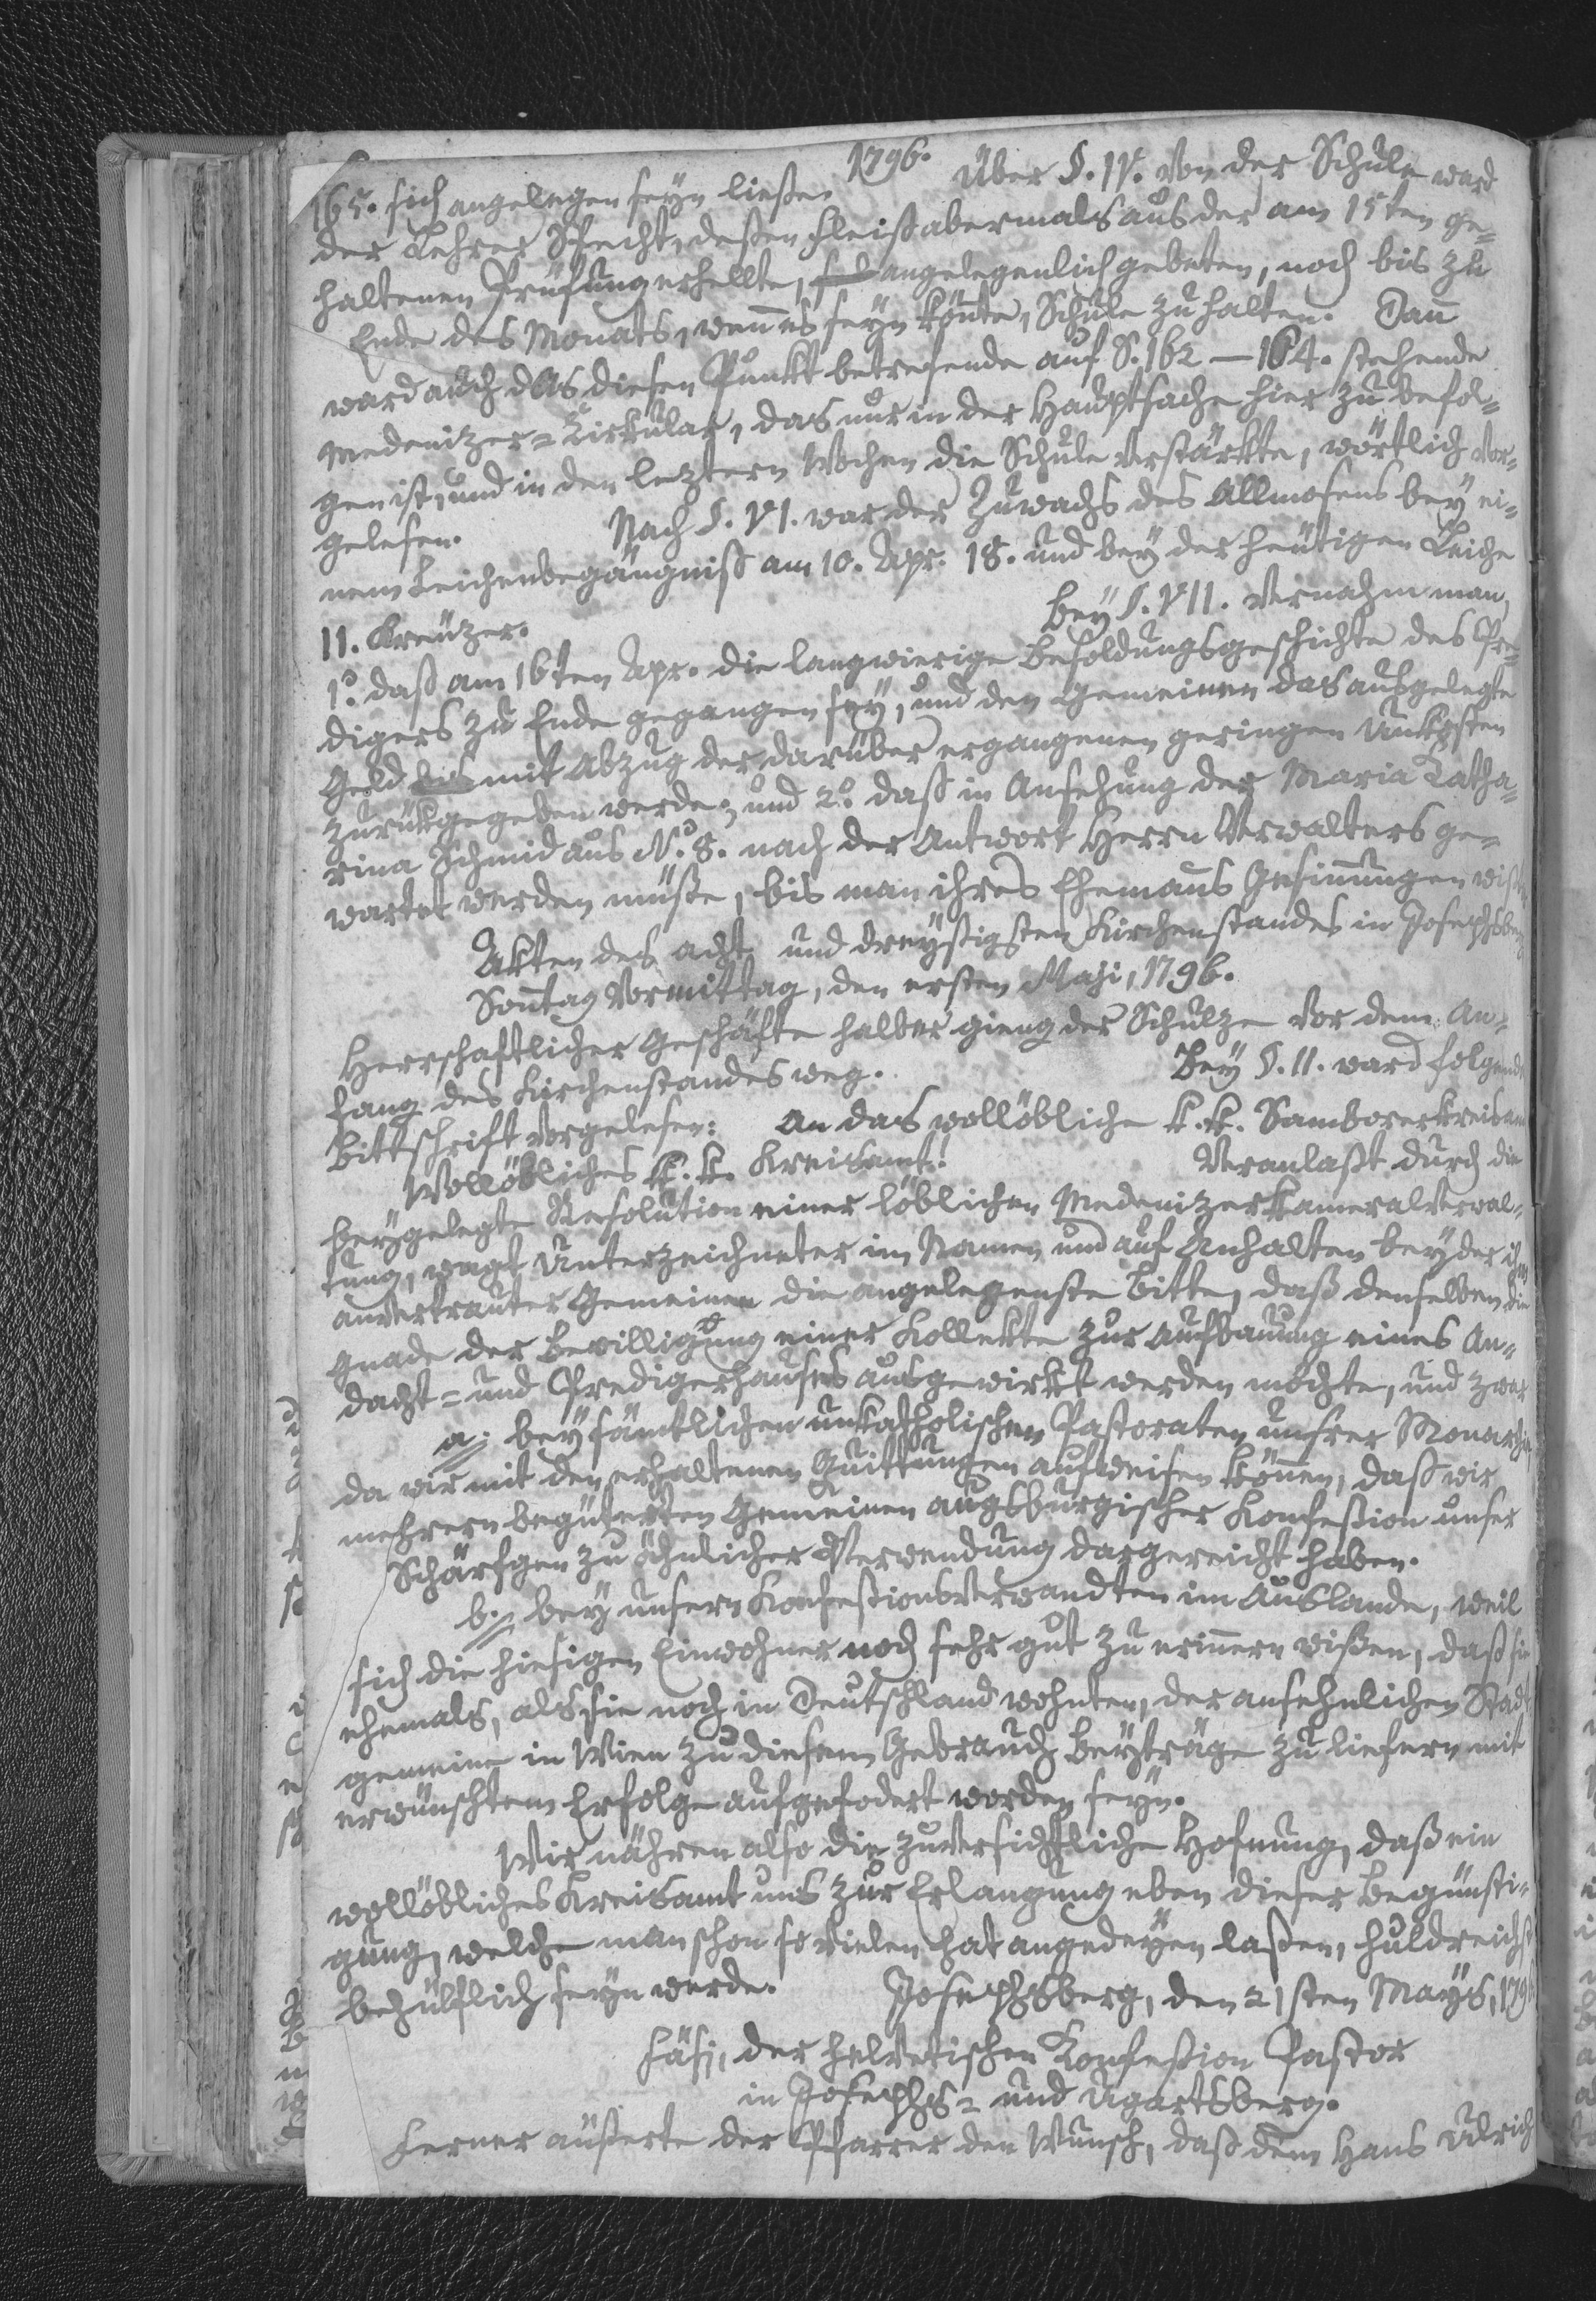 1796.
165. sich angelegen seyn ließe. Über §. IV. von der Schule ward
der Lehrer Specht, deßen Fleiß abermals aus der am 15ten ge=
haltenen Prüfung erhellte, angelegenlich gebeten, noch bis zu
Ende des Monats, wenn es seyn könnte, Schule zu halten. Dann
ward auch das diesen Punkt betrefende auf S. 162 — 164. stehende
Medenitzer=Zirkular, das nur in der Hauptsache hier zu befol=
gen ist, und in den leztern Wochen die Schule verstärkte, wörtlich vor=
gelesen. Nach §. VI. war der Zuwachs des Allmosens bey ei=
nem Leichenbegängniß am 10. Apr. 18. und bey der heutigen Leiche
11. Kreuzer. Bey §. VII. vernahm man,
1º. daß am 16ten Apr. die langwierige Besoldungsgeschichte des Pre=
digers zu Ende gegangen sey, und den Gemeinen das ausgelegte
Geld mit Abzug der darüber ergangenen geringen Unkosten
zurükgegeben werde; und 2º. daß in Ansehung der Maria Katha=
rina Schmid aus N.º 8. nach der Antwort Herrn Verwalters ge=
wartet werden müße, bis man ihres Ehemans Gesinnungen wißte
Akten des acht und dreyßigsten Kirchenstandes in Josephsberg
Sontag Vormittag, den ersten Maji, 1796.
Herrschaftlicher Geschäfte halber gieng der Schulze vor dem An=
fang des Kirchenstandes weg. Bey §. II. ward folgende
Bittschrift vorgelesen: An das wollöbliche k. k. Samborerkreisamt
Wollöbliches k. k. Kreisamt! Veranlaßt durch die
beygelegte Resolution einer löblichen Medenizerkameralverwal=
tung, wagt Unterzeichneter im Namen und auf Anhalten beyder ihm
anvertrauter Gemeinen die angelegenste Bitte, daß denselben die
Gnade der Bewilligung einer Kollekte zur Aufbauung eines An=
dacht= und Predigerhauses ausgewirkt werden möchte, und zwar
a.) bey sämtlichen unkatholischen Pastoraten unsrer Monarchie,
da wir mit den erhaltenen Quittungen aufweisen können, daß wir
mehrern begüterten Gemeinen augsburgischer Konfeßion unser
Schärfgen zu ähnlicher Verwendung dargereicht haben.
b.) bey unsern Konfeßionsverwandten im Auslande, weil
sich die hiesigen Einwohner noch sehr gut zu erinnern wißen, daß sie
ehemals, als sie noch in Deutschland wohnten, der ansehnlichen Stadt
gemeine in Wien zu diesem Gebrauch Beyträge zu liefern mit
erwünschtem Erfolge aufgefodert worden seyn.
Wir nähren also die zuversichtliche Hofnung, daß ein
wollöbliches Kreisamt uns zur Erlangung eben dieser Begünsti=
gung, welche man schon so vielen hat angedeyen laßen, huldreichst
behülflich seyn werde. Josephsberg, den 21sten Mays, 1796
Fäsi, der helvetischen Konfeßion Pastor
in Josephs= und Ugartsberg.
Ferner äußerte der Pfarrer den Wunsch, daß dem Hans Ulrich